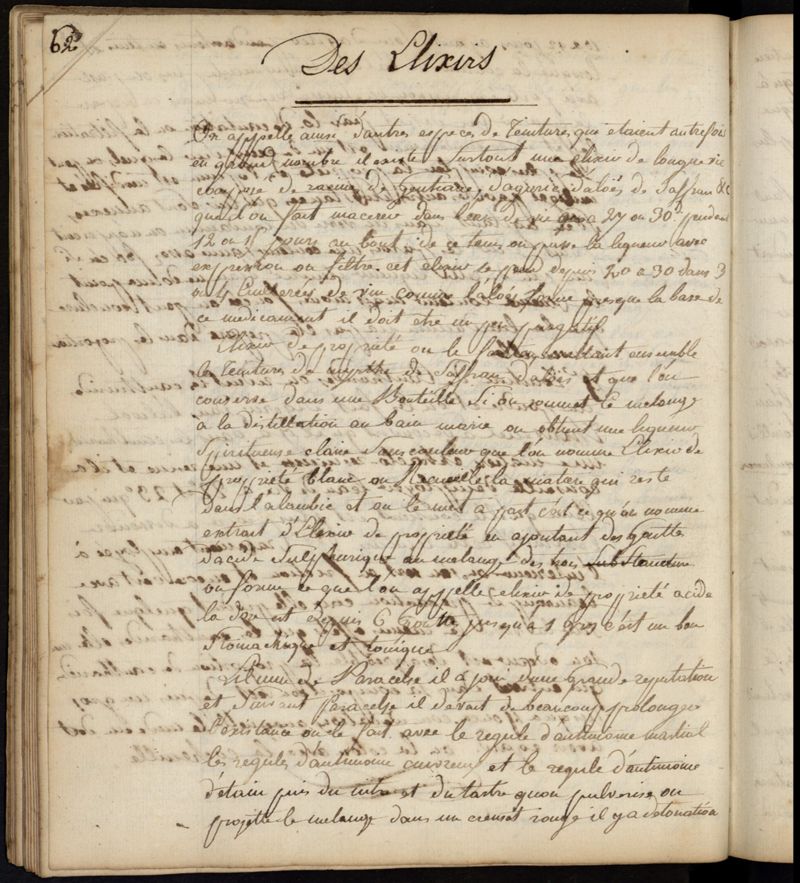 62
Des Elixirs
On appelle ainsi d'autres especes de Teintures qui etaient autrefois
en grand nombre il existe surtout une elixir de longue vie
composé de racine de gentiane d'agaric d'aloës de Saffran &c
que l'on fait macerer dans l'eau de vie a 27 ou 30.d pendant
12 ou 15 jours au bout de ce tems on passe la liqueur avec
expression on filtre. cet elixir se prend depuis 20 a 30 dans 3
ou 4 Cuillerées de vin comme l'aloës forme presque la base de
ce medicament il doit etre un peu purgatif
Elixir de propriété on le fait en mettant ensemble
les Teintures de myrrhe de Saffran d'aloës et que l'on
conserve dans une Bouteille si on soumet le melange
à la distillation au bain marie on obtient une liqueur
spiritueuse claire sans couleur que l'on nomme Elixir de
propriété blanc on Recueille la matiere qui reste
dans l'alambic et on le met a part c'est ce qu'on nomme
extrait d'Elixir de propriété en ajoutant des goutte
d'acide Sulphurique au melange des trois substances
on forme ce que l'on appelle elixir de propriété acide
la dose est depuis 6 goutte jusqu'a 1 gros c'est un bon
Stomachique et tonique
Lilium de Paracelse il a joui d'une grande reputation
et suivant paracelse il devait de beaucoup prolonger
l'existance on le fait avec le regule d'antimoine martial
les regules d'antimoine cuivreux et le regule d'antimoine
d'étain puis du nitre et du tartre qu'on pulverise on
projette le melange dans un creuset rouge il y a detonation